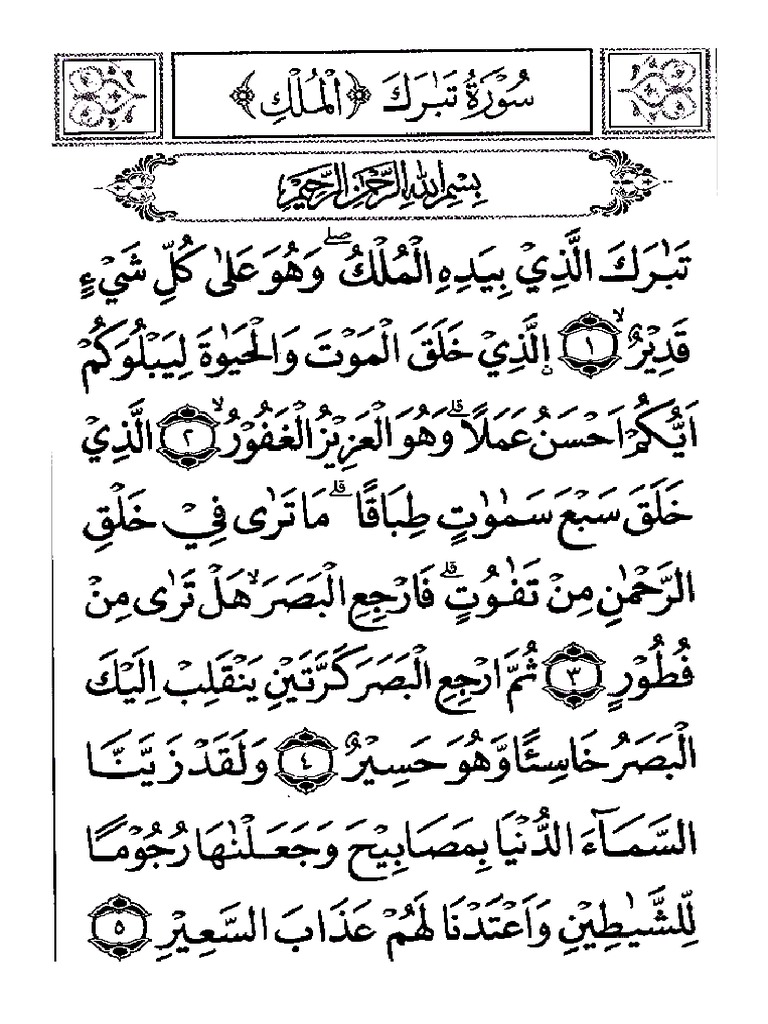 سُوْرَةُ تَبٰرَكَ ﴿الْمُلْكِ﴾
بِسْمِ اللّٰهِ الرَّحْمٰنِ الرَّحِيْمِ
تَبٰرَكَ الَّذِيْ بِيَدِهِ الْمُلْكُ ۖ وَهُوَ عَلٰى كُلِّ شَيْءٍ
قَدِيْرُۙ ﴿١﴾ اِۨلَّذِيْ خَلَقَ الْمَوْتَ وَالْحَيٰوةَ لِيَبْلُوَكُمْ
اَيُّكُمْ اَحْسَنُ عَمَلًا ۗ وَهُوَ الْعَزِيْزُ الْغَفُوْرُۙ ﴿٢﴾ الَّذِيْ
خَلَقَ سَبْعَ سَمٰوٰتٍ طِبَاقًا ۗ مَا تَرٰى فِيْ خَلْقِ
الرَّحْمٰنِ مِنْ تَفٰوُتٍ ۗ فَارْجِعِ الْبَصَرَ ۙ هَلْ تَرٰى مِنْ
فُطُوْرٍ ﴿٣﴾ ثُمَّ ارْجِعِ الْبَصَرَ كَرَّتَيْنِ يَنْقَلِبْ اِلَيْكَ
الْبَصَرُ خَاسِئًا وَّهُوَ حَسِيْرٌ ﴿٤﴾ وَلَقَدْ زَيَّنَّا
السَّمَاۤءَ الدُّنْيَا بِمَصَابِيْحَ وَجَعَلْنٰهَا رُجُوْمًا
لِّلشَّيٰطِيْنِ وَاَعْتَدْنَا لَهُمْ عَذَابَ السَّعِيْرِ ﴿٥﴾